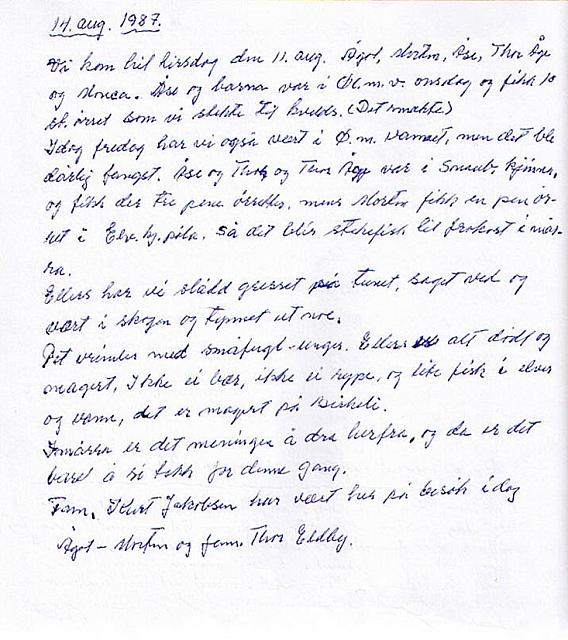 14. aug. 1987.
Vi kom hit tirsdag den 11. aug. Ågot, Morten, Åse, Thor Åge
og Monca. Åse og barna var i Øl.m.v. onsdag og fikk 10
st. ørret som vi stekte til kvelds. (Det smakte)
Idag fredag har vi også vært i Ø.m. vannet, men det ble
dårlig fangst. Åse og Thor og Thor Åge var i Smaub. kjønna,
og fikk der tre pene ørreter, mens Morten fikk en pen ør-
ret i Elv.kj. så det blir stekefisk til frokost i mår-
ra.
Ellers har vi slådd gresset på tunet, saget ved og
vært i skogen og tynnet ut noe.
Det vrimler med småfugl-unger. Ellers alt dødt og
magert. Ikke ei bær, ikke ei rype, og lite fisk i elver
og vann, det er magert på Birkeli.
Imårra er det meningen å dra herfra, og da er det
bare å si takk for denne gang.
Fam. Kurt Jakobsen har vært her på besøk idag
Ågot - Morten og fam. Thor